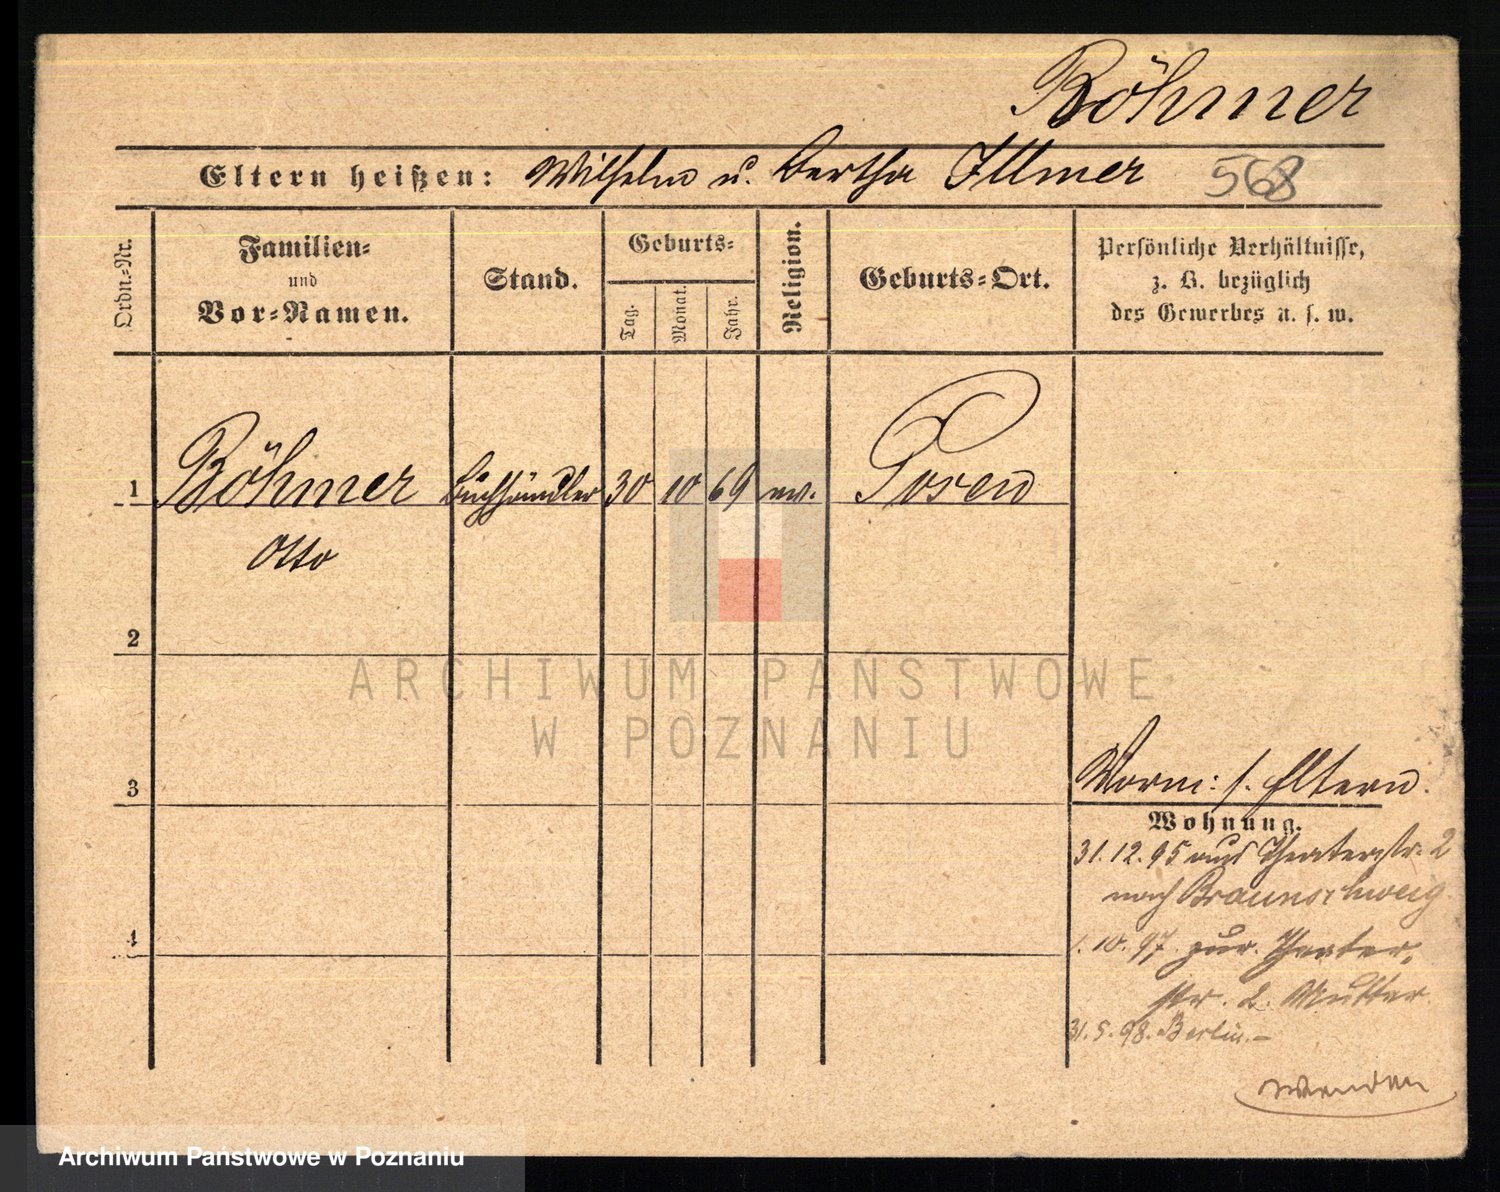 Böhmer
Eltern heißen: Wilhelm u. Bertha Illmer 568
Ordn.-Nr.
Familien-
und
Vor-Namen.
Stand.
Geburts-
Tag.
Monat.
Jahr.
Religion.
Geburts-Ort.
Persönliche Verhältnisse,
z. B. bezüglich
des Gewerbes u. s. w.
1 Böhmer Buchhändler 30 10 69 ev. Posen
Otto
2
3
4
Vorm: s. Eltern.
Wohnung.
31.12.95 aus Theaterstr. 2
nach Braunschweig.
1.10.97. zur. Theater-
str. 2. Mutter.
31.5.98. Berlin. –
Wenden
ARCHIWUM PAŃSTWOWE
W POZNANIU
Archiwum Państwowe w Poznaniu